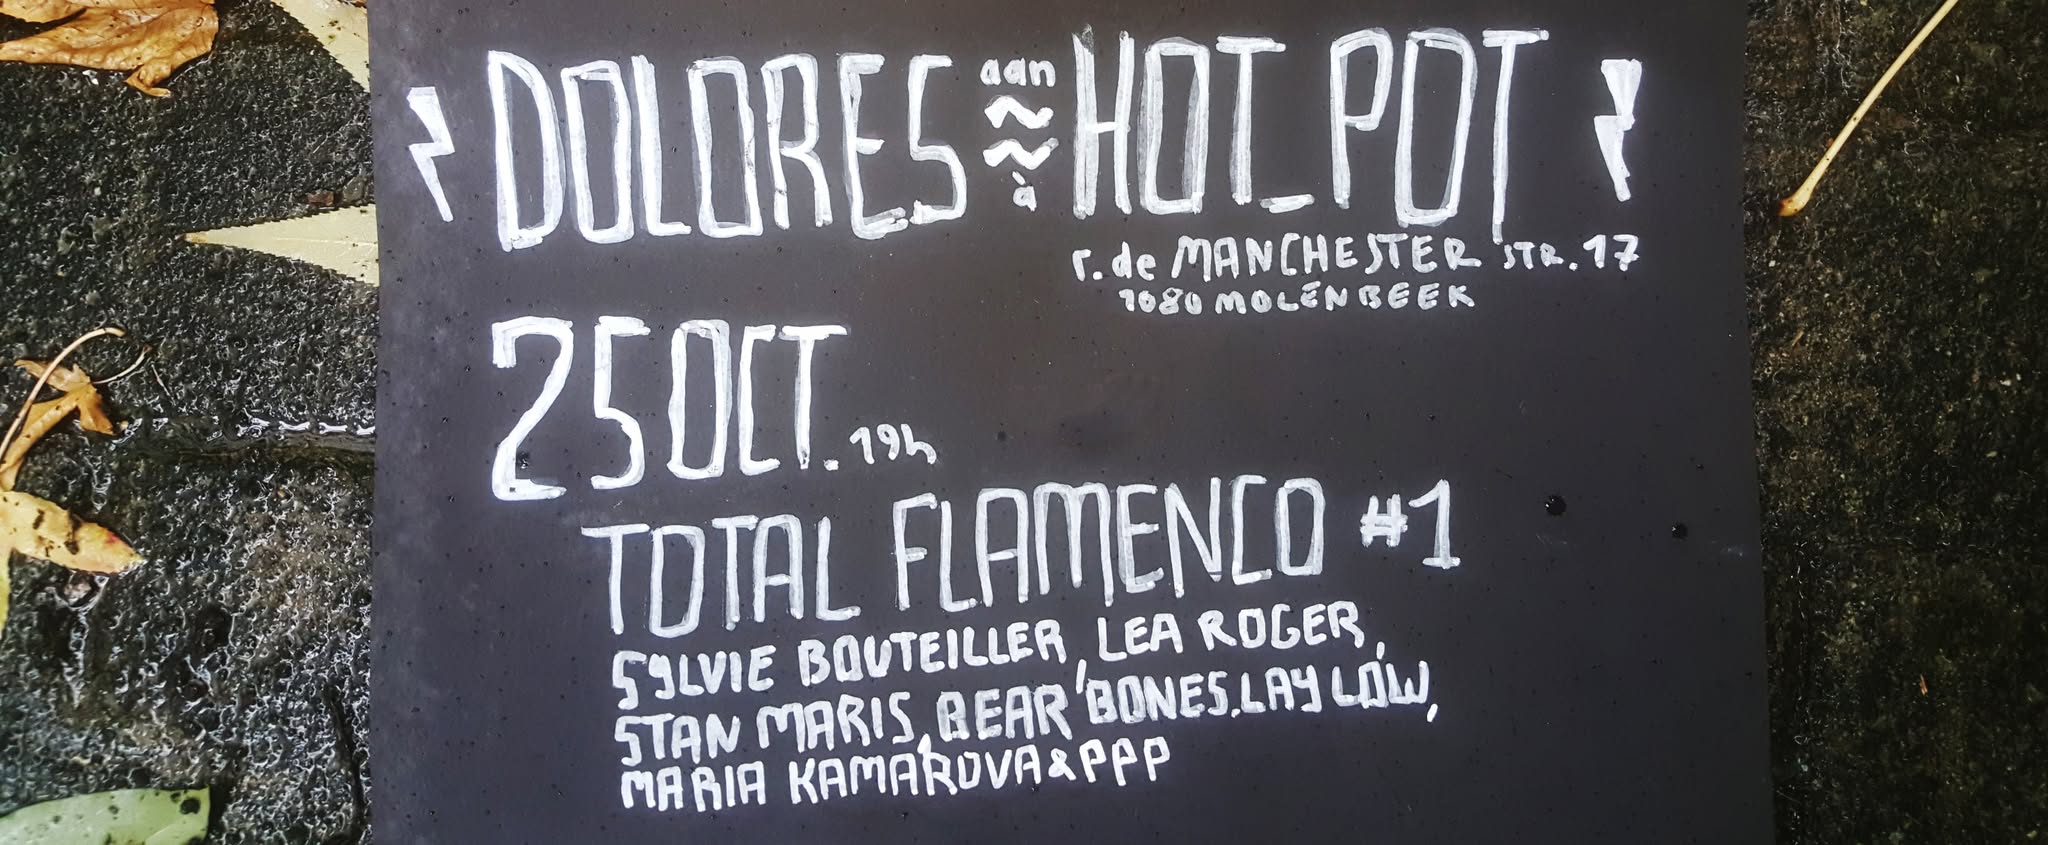 DOLORES aan à HOT_POT
r. de MANCHESTER STR. 17
1080 MOLENBEEK
25 OCT. 19h
TOTAL FLAMENCO #1
SYLVIE BOUTEILLER, LEA ROGER,
STAN MARIS, BEAR BONES, LAY LOW,
MARIA KAMAROVA & PPP